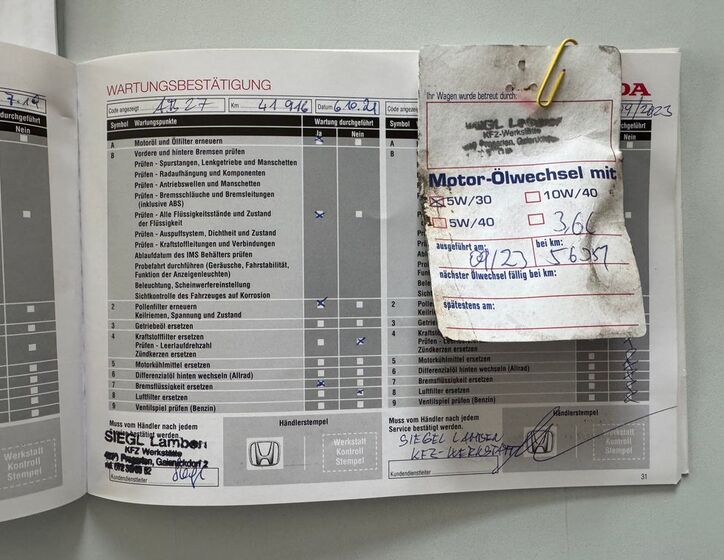 7.19
durchgeführt
Nein
WARTUNGSBESTÄTIGUNG
Code angezeigt
Km 41 916
Datum 6.10.21
Symbol Wartungspunkte Wartung durchgeführt
Ja Nein
A Motoröl und Ölfilter erneuern
B Vordere und hintere Bremsen prüfen
Prüfen - Spurstangen, Lenkgetriebe und Manschetten
Prüfen - Radaufhängung und Komponenten
Prüfen - Antriebswellen und Manschetten
Prüfen - Bremsschläuche und Bremsleitungen
(inklusive ABS)
Prüfen - Alle Flüssigkeitsstände und Zustand
der Flüssigkeit
Prüfen - Auspuffsystem, Dichtheit und Zustand
Prüfen - Kraftstoffleitungen und Verbindungen
Ablaufdatum des IMS Behälters prüfen
Probefahrt durchführen (Geräusche, Fahrstabilität,
Funktion der Anzeigenleuchten)
Beleuchtung, Scheinwerfereinstellung
Sichtkontrolle des Fahrzeuges auf Korrosion
2 Pollenfilter erneuern
Keilriemen, Spannung und Zustand
3 Getriebeöl ersetzen
4 Kraftstofffilter ersetzen
Prüfen - Leerlaufdrehzahl
Zündkerzen ersetzen
5 Motorkühlmittel ersetzen
6 Differenzialöl hinten wechseln (Allrad)
7 Bremsflüssigkeit ersetzen
8 Luftfilter ersetzen
9 Ventilspiel prüfen (Benzin)
Muss vom Händler nach jedem
Service bestätigt werden.
Händlerstempel
SIEGL Lambert
KFZ Werkstätte
Kundendienstleiter
Werkstatt
Kontroll
Stempel
Werkstatt
Kontroll
Stempel
DA
Code angezeigt
09/2023
Symbol
durchgeführt
Nein
A
B
2 Pollen
Keilriemen
3 Getriebeöl ersetzen
4 Kraftstofffilter ersetzen
Prüfen - Leerlaufdrehzahl
Zündkerzen ersetzen
5 Motorkühlmittel ersetzen
6 Differenzialöl hinten wechseln (Allrad)
7 Bremsflüssigkeit ersetzen
8 Luftfilter ersetzen
9 Ventilspiel prüfen (Benzin)
Muss vom Händler nach jedem
Service bestätigt werden.
Händlerstempel
KFZ-WERKSTÄTTE
Kundendienstleiter
Werkstatt
Kontroll
Stempel
31
Ihr Wagen wurde betreut durch:
SIEGL Lambert
KFZ-Werkstätte
Motor-Ölwechsel mit
5W/30 10W/40
5W/40 3,6L
ausgeführt am: bei km:
09/23
nächster Ölwechsel fällig bei km:
spätestens am: